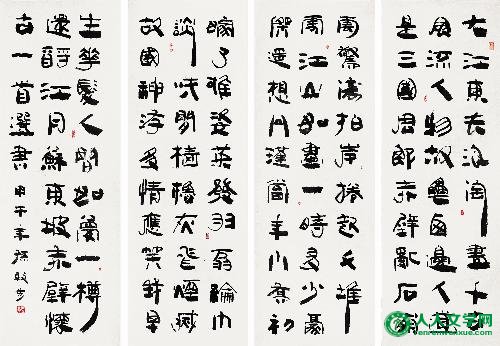 大江東去浪淘盡千古
風流人物故壘西邊人道
是三國周郎赤壁亂石
雲驚濤拍岸捲起千堆
雪江山如畫一時多少豪
傑遥想公瑾當年小喬初
嫁了雄姿英發羽扇綸巾
談笑間檣櫓灰飛煙滅
故國神游多情應笑我早
生華髮人間如夢一樽
還酹江月蘇東坡赤壁懷
古一首選書 甲午年孫敏
人人文学网